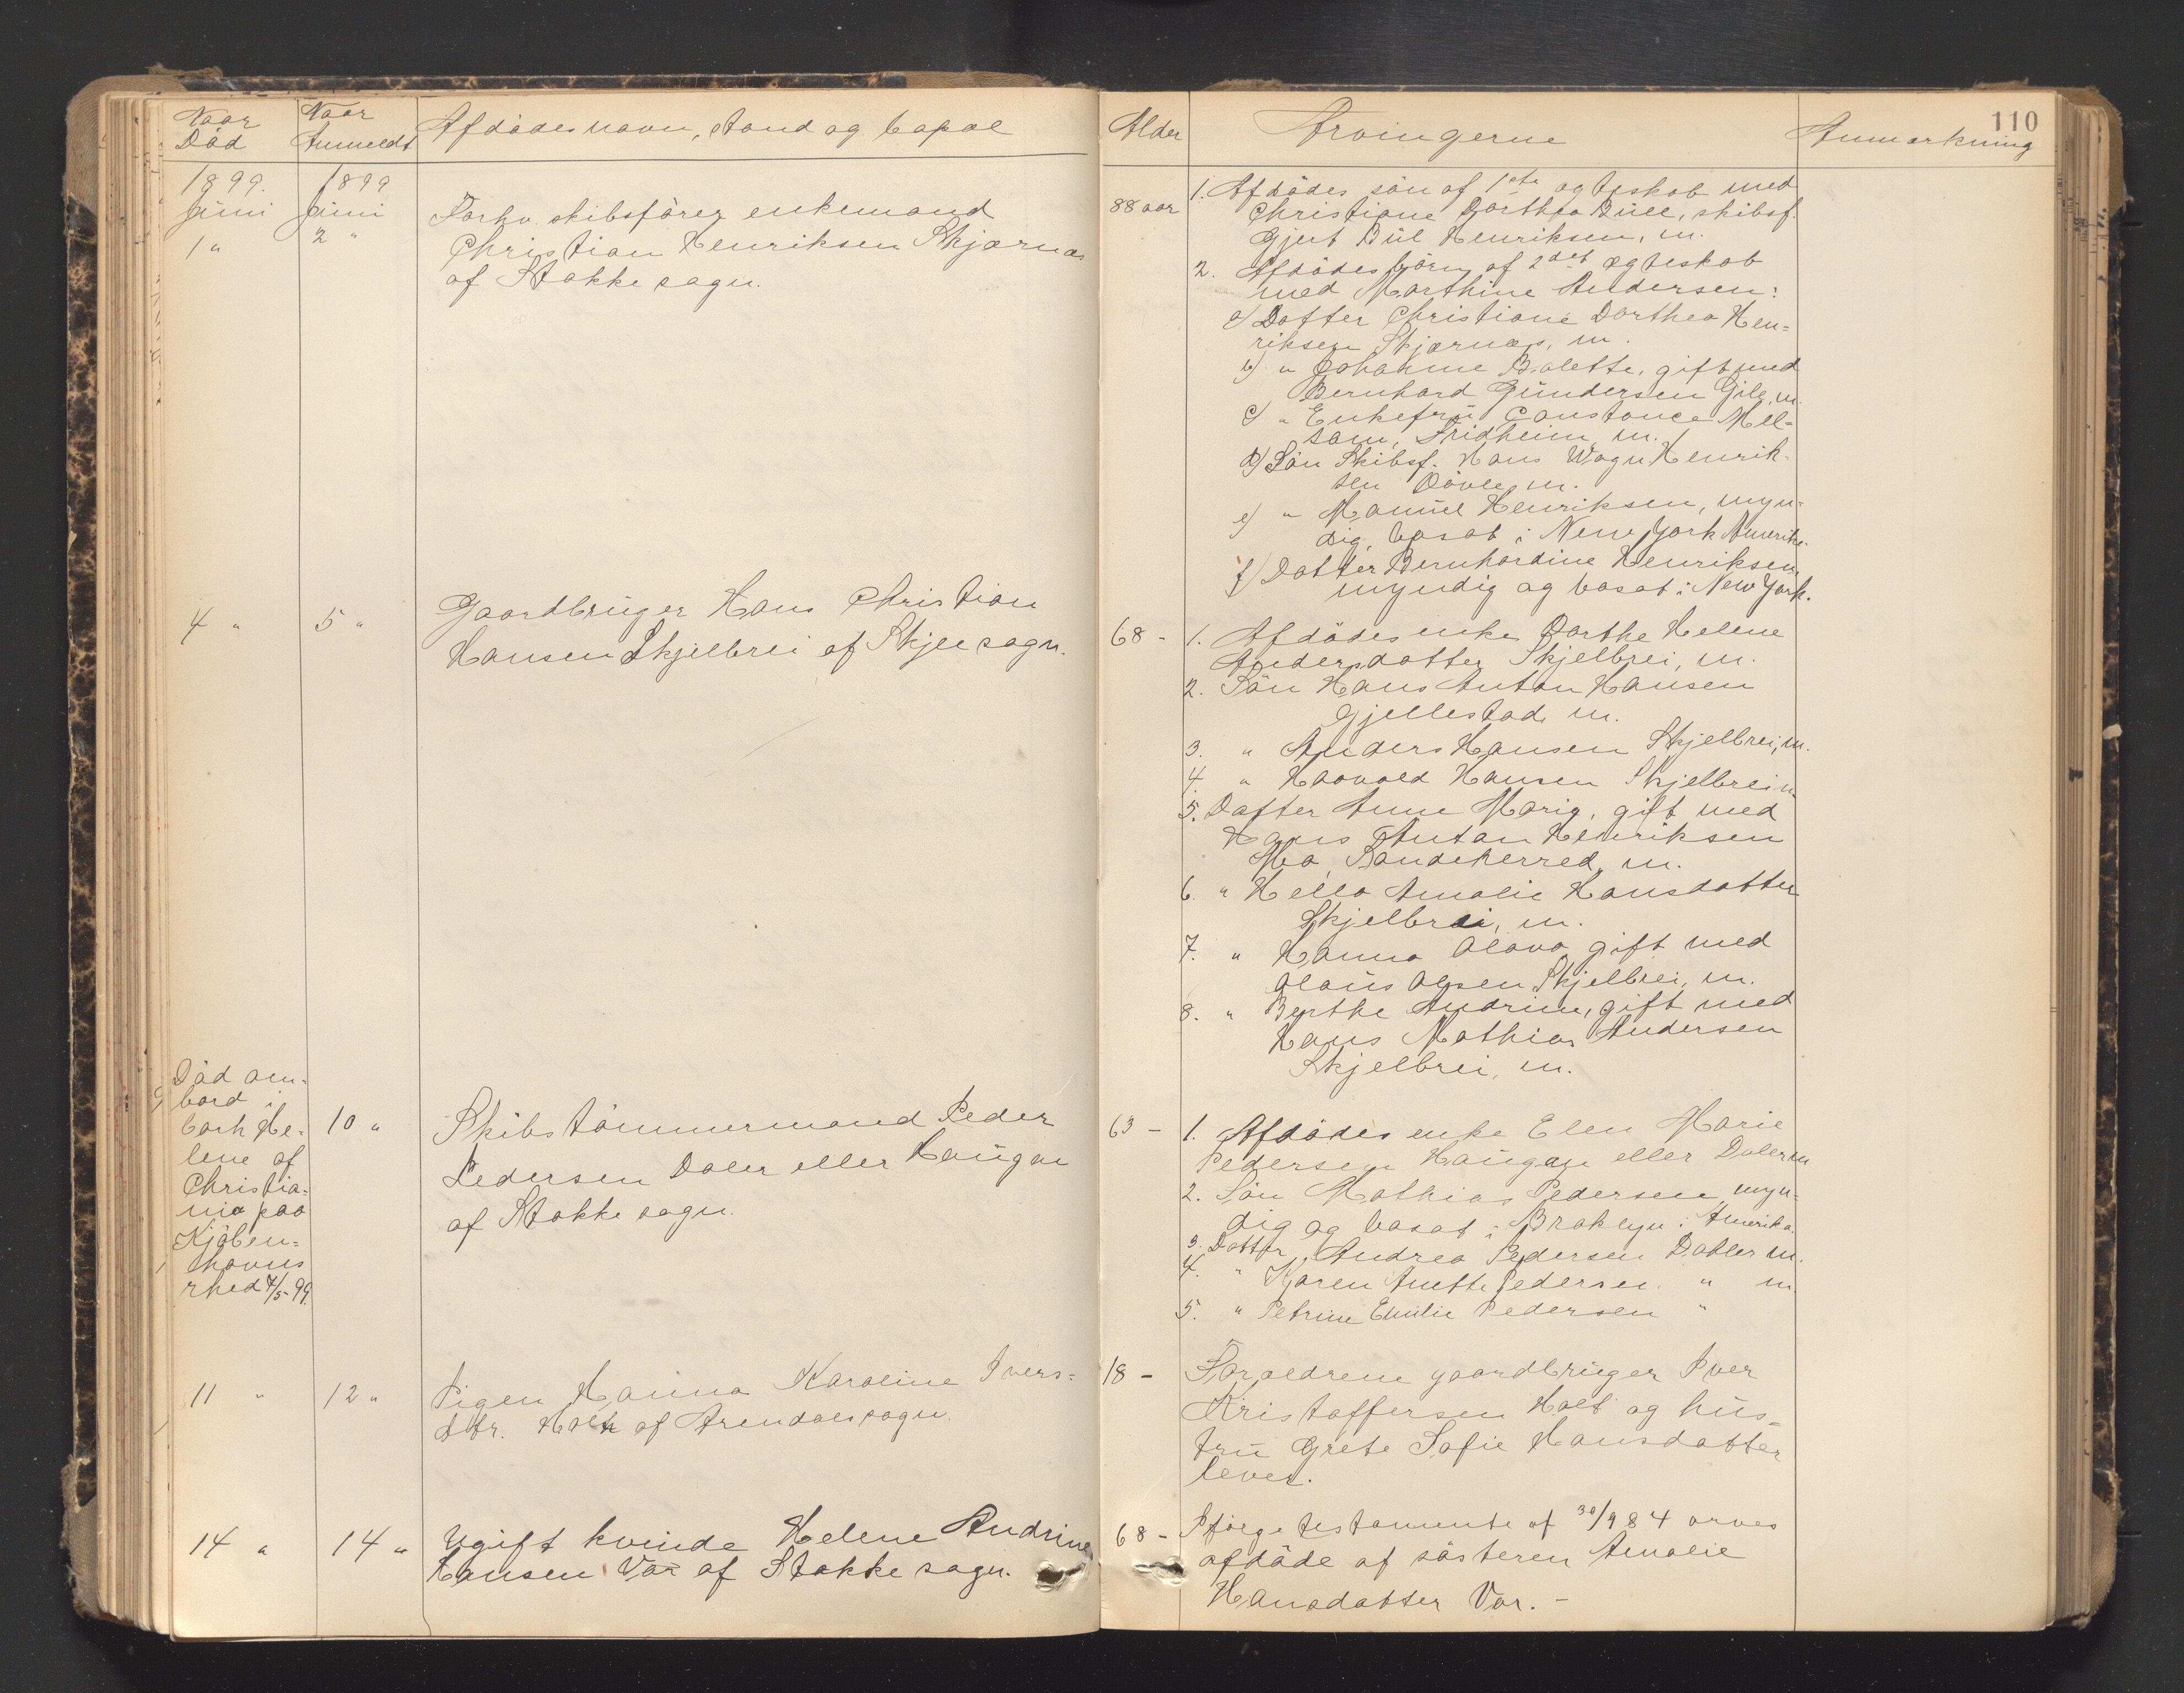 Naar Død
Naar Anmeldt
Afdødes navn, stand og bopæl
1899. 1899
Juni Juni
1 " 2 "
Forhv. skibsfører enkemand
Christian Henriksen Skjærnæs
af Stokke sogn.
4 " 5 "
Gaardbruger Hans Christian
Hansen Skjelbrei af Skjee sogn.
Död om-
bord i
bark He-
lene af
Christia-
nia paa
Kjøben-
havns
rhed 7/5-99.
10 "
Skibstømmermand Peder
Pedersen Doler eller Haugan
af Stokke sogn.
11 " 12 "
Pigen Hanna Karoline Ivers-
dtr. Holt af Arendals sogn.
14 " 14 "
Ugift kvinde Helene Andrine
Hansen Vær af Stokke sogn.
110
Alder
Arvingerne
Anmærkning
88 aar
1. Afdødes søn af 1ste egteskab med
Christiane Dorthea Bull, skibsf.
Gjert Bül Henriksen, m.
2. Afdødes børn af 2det egteskab
med Marthine Andersen:
a) Datter Christiane Dorthea Hen-
riksen Skjærnæs, m.
b) " Johanne Bolette, gift med
Bernhard Gundersen Gile, m.
c) " Enkefru Constance Mel-
som, Fridheim m.
d) Søn Skibsf. Hans Wagn Henrik-
sen Døvle m.
e) " Manuel Henriksen, myn-
dig, bosat i New York Amerika.
f) Datter Bernhardine Henriksen,
myndig og bosat i New York.
68 -
1. Afdødes enke Dorthe Helene
Andersdatter Skjelbrei, m.
2. Søn Hans Anton Hansen
Gjellestad m.
3. " Anders Hansen Skjelbrei, m.
4. " Haavald Hansen Skjelbrei m
5. Datter Anne Marie, gift med
Hans Anton Henriksen
Mo, Sandeherred, m.
6. " Hella Amalie Hansdatter
Skjelbrei, m.
7. " Hanna Olava gift med
Olaus Olsen Skjelbrei, m.
8. " Berthe Andrine, gift med
Hans Mathias Andersen
Skjelbrei, m.
63 -
1. Afdødes enke Elen Marie
Pedersen Haugan eller Doler m
2. Søn Mathias Pedersen, myn-
dig og bosat i Broklyn i Amerika.
3. Datter Andrea Pedersen Dahler m.
4. " Karen Anette Pedersen " m.
5. " Petrine Emilie Pedersen "
18 -
Forældrene gaardbruger Iver
Kristoffersen Holt og hus-
tru Grete Sofie Hansdatter
lever.
68 -
Ifølge testamente af 30/9 84 arves
afdøde af søsteren Amalie
Hansdatter Vær. -